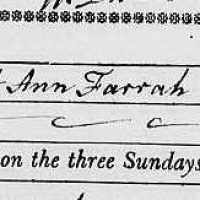 Ann Farrah
on the three Sundays